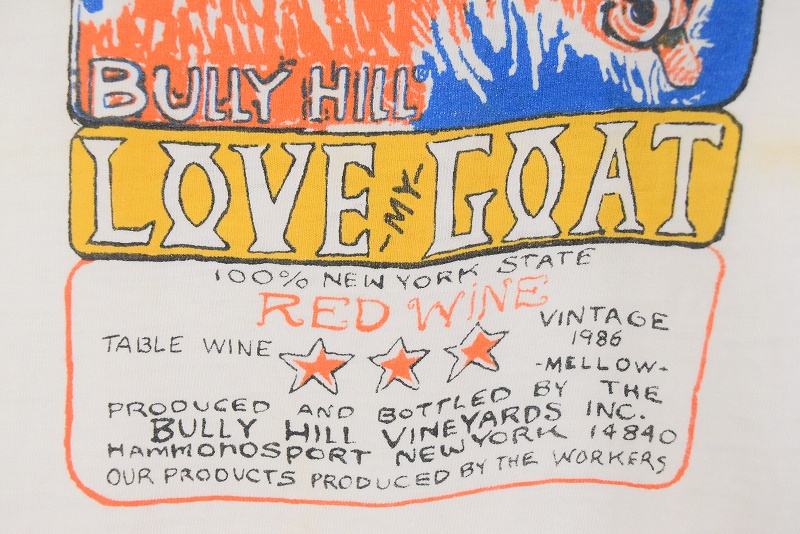 BULLY HILL®
LOVE -MY- GOAT
100% NEW YORK STATE
RED WiNE
TABLE WINE
VINTAGE
1986
-MELLOW-
PRODUCED AND BOTTLED BY THE
BULLY HILL VINEYARDS INC.
HAMMONDSPORT NEW YORK 14840
OUR PRODUCTS PRODUCED BY THE WORKERS